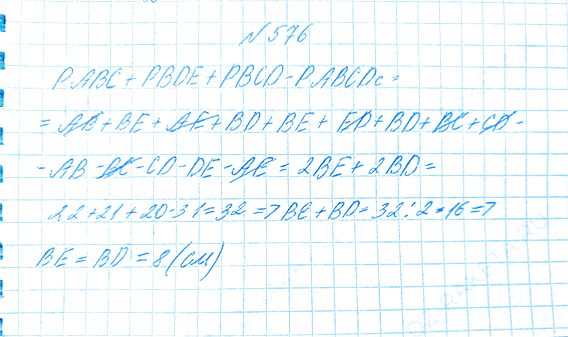 N 576
PABC + PBDE + PBCD - PABCDE =
= AB + BE + AE + BD + BE + ED + BD + BC + CD -
- AB - BC - CD - DE - AE = 2BE + 2BD =
22 + 21 + 20 - 31 = 32 => BE + BD = 32 : 2 = 16 =>
BE = BD = 8 (см)